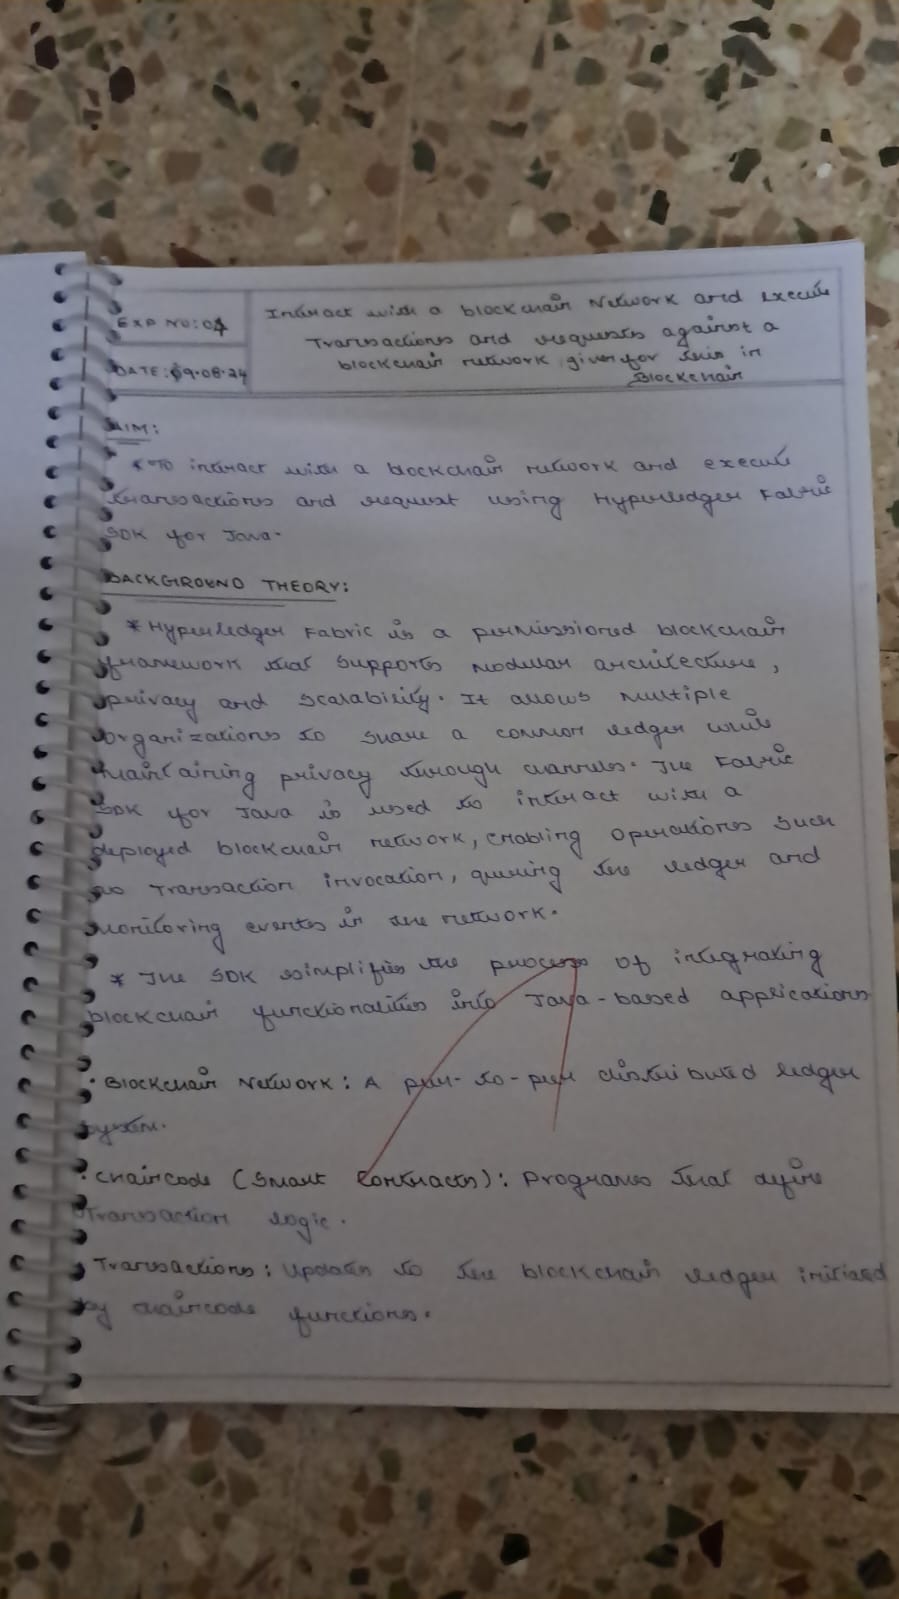 EXP NO: 04
Interact with a blockchain Network and execute
Transactions and requests against a
blockchain network given for this in
Blockchain
DATE: 09.08.24
AIM:
* To interact with a blockchain network and execute
transactions and request using Hyperledger Fabric
SDK for Java.
BACKGROUND THEORY:
* Hyperledger Fabric is a permissioned blockchain
framework that supports modular architecture,
privacy and scalability. It allows multiple
organizations to share a common ledger while
maintaining privacy through channels. The Fabric
SDK for Java is used to interact with a
deployed blockchain network, enabling operations such
as Transaction invocation, querying the ledger and
monitoring events in the network.
* The SDK simplifies the process of integrating
blockchain functionalities into Java-based applications
• Blockchain Network: A peer-to-peer distributed ledger
system.
• Chaincode (Smart Contracts): Programs that define
Transaction logic.
• Transactions: Updates to the blockchain ledger initiated
by chaincode functions.